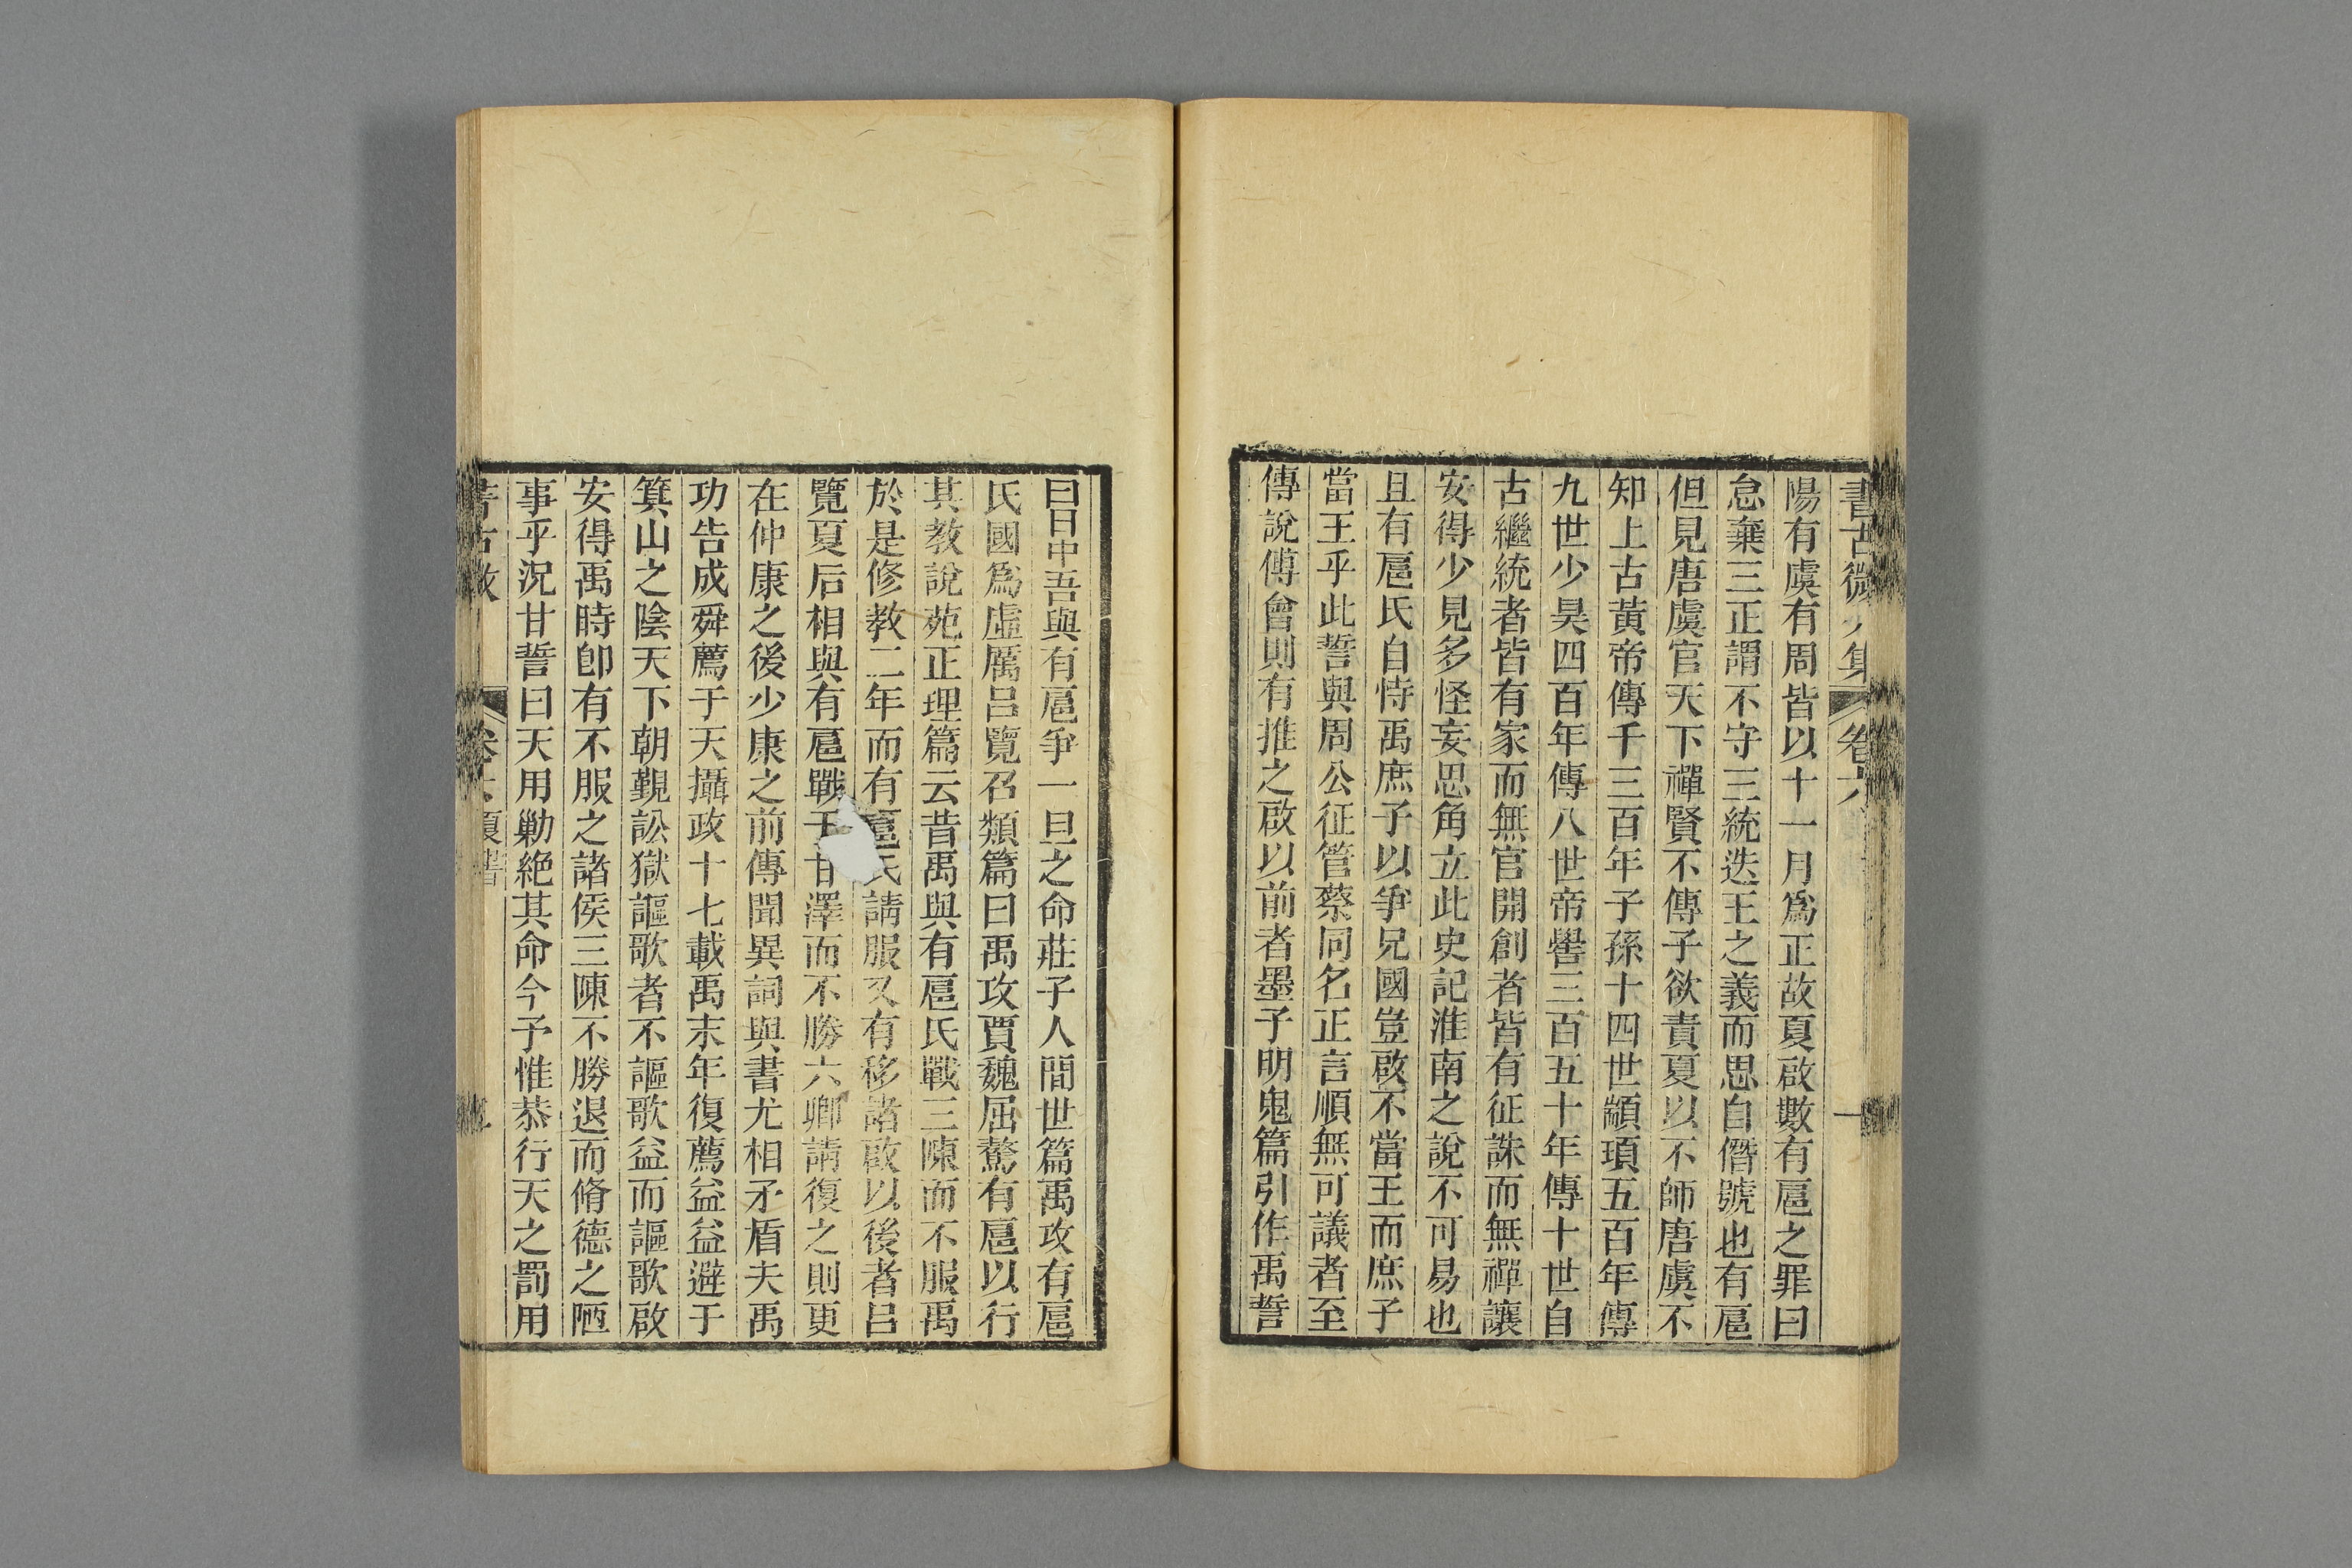 書古微 卷六 一
陽有虞有周皆以十一月爲正故夏啟數有扈之罪曰
怠棄三正謂不守三統迭王之義而思自僭號也有扈
但見唐虞官天下禪賢不傳子欲責夏以不師唐虞不
知上古黃帝傳千三百年子孫十四世顓頊五百年傳
九世少昊四百年傳八世帝嚳三百五十年傳十世自
古繼統者皆有家而無官開創者皆有征誅而無禪讓
安得少見多怪妄思角立此史記淮南之說不可易也
且有扈氏自恃禹庶子以爭兄國豈啟不當王而庶子
當王乎此誓與周公征管蔡同名正言順無可議者至
傳說傅會則有推之啟以前者墨子明鬼篇引作禹誓
曰日中吾與有扈爭一旦之命莊子人間世篇禹攻有扈
氏國爲虛厲呂覽召類篇曰禹攻賈魏屈驁有扈以行
其教說苑正理篇云昔禹與有扈氏戰三陳而不服禹
於是修教二年而有扈氏請服又有移諸啟以後者呂
覽夏后相與有扈戰于甘澤而不勝六卿請復之則更
在仲康之後少康之前傳聞異詞與書尤相矛盾夫禹
功告成舜薦于天攝政十七載禹末年復薦益益避于
箕山之陰天下朝覲訟獄謳歌者不謳歌益而謳歌啟
安得禹時卽有不服之諸侯三陳不勝退而脩德之陋
事乎況甘誓曰天用勦絕其命今予惟恭行天之罰用